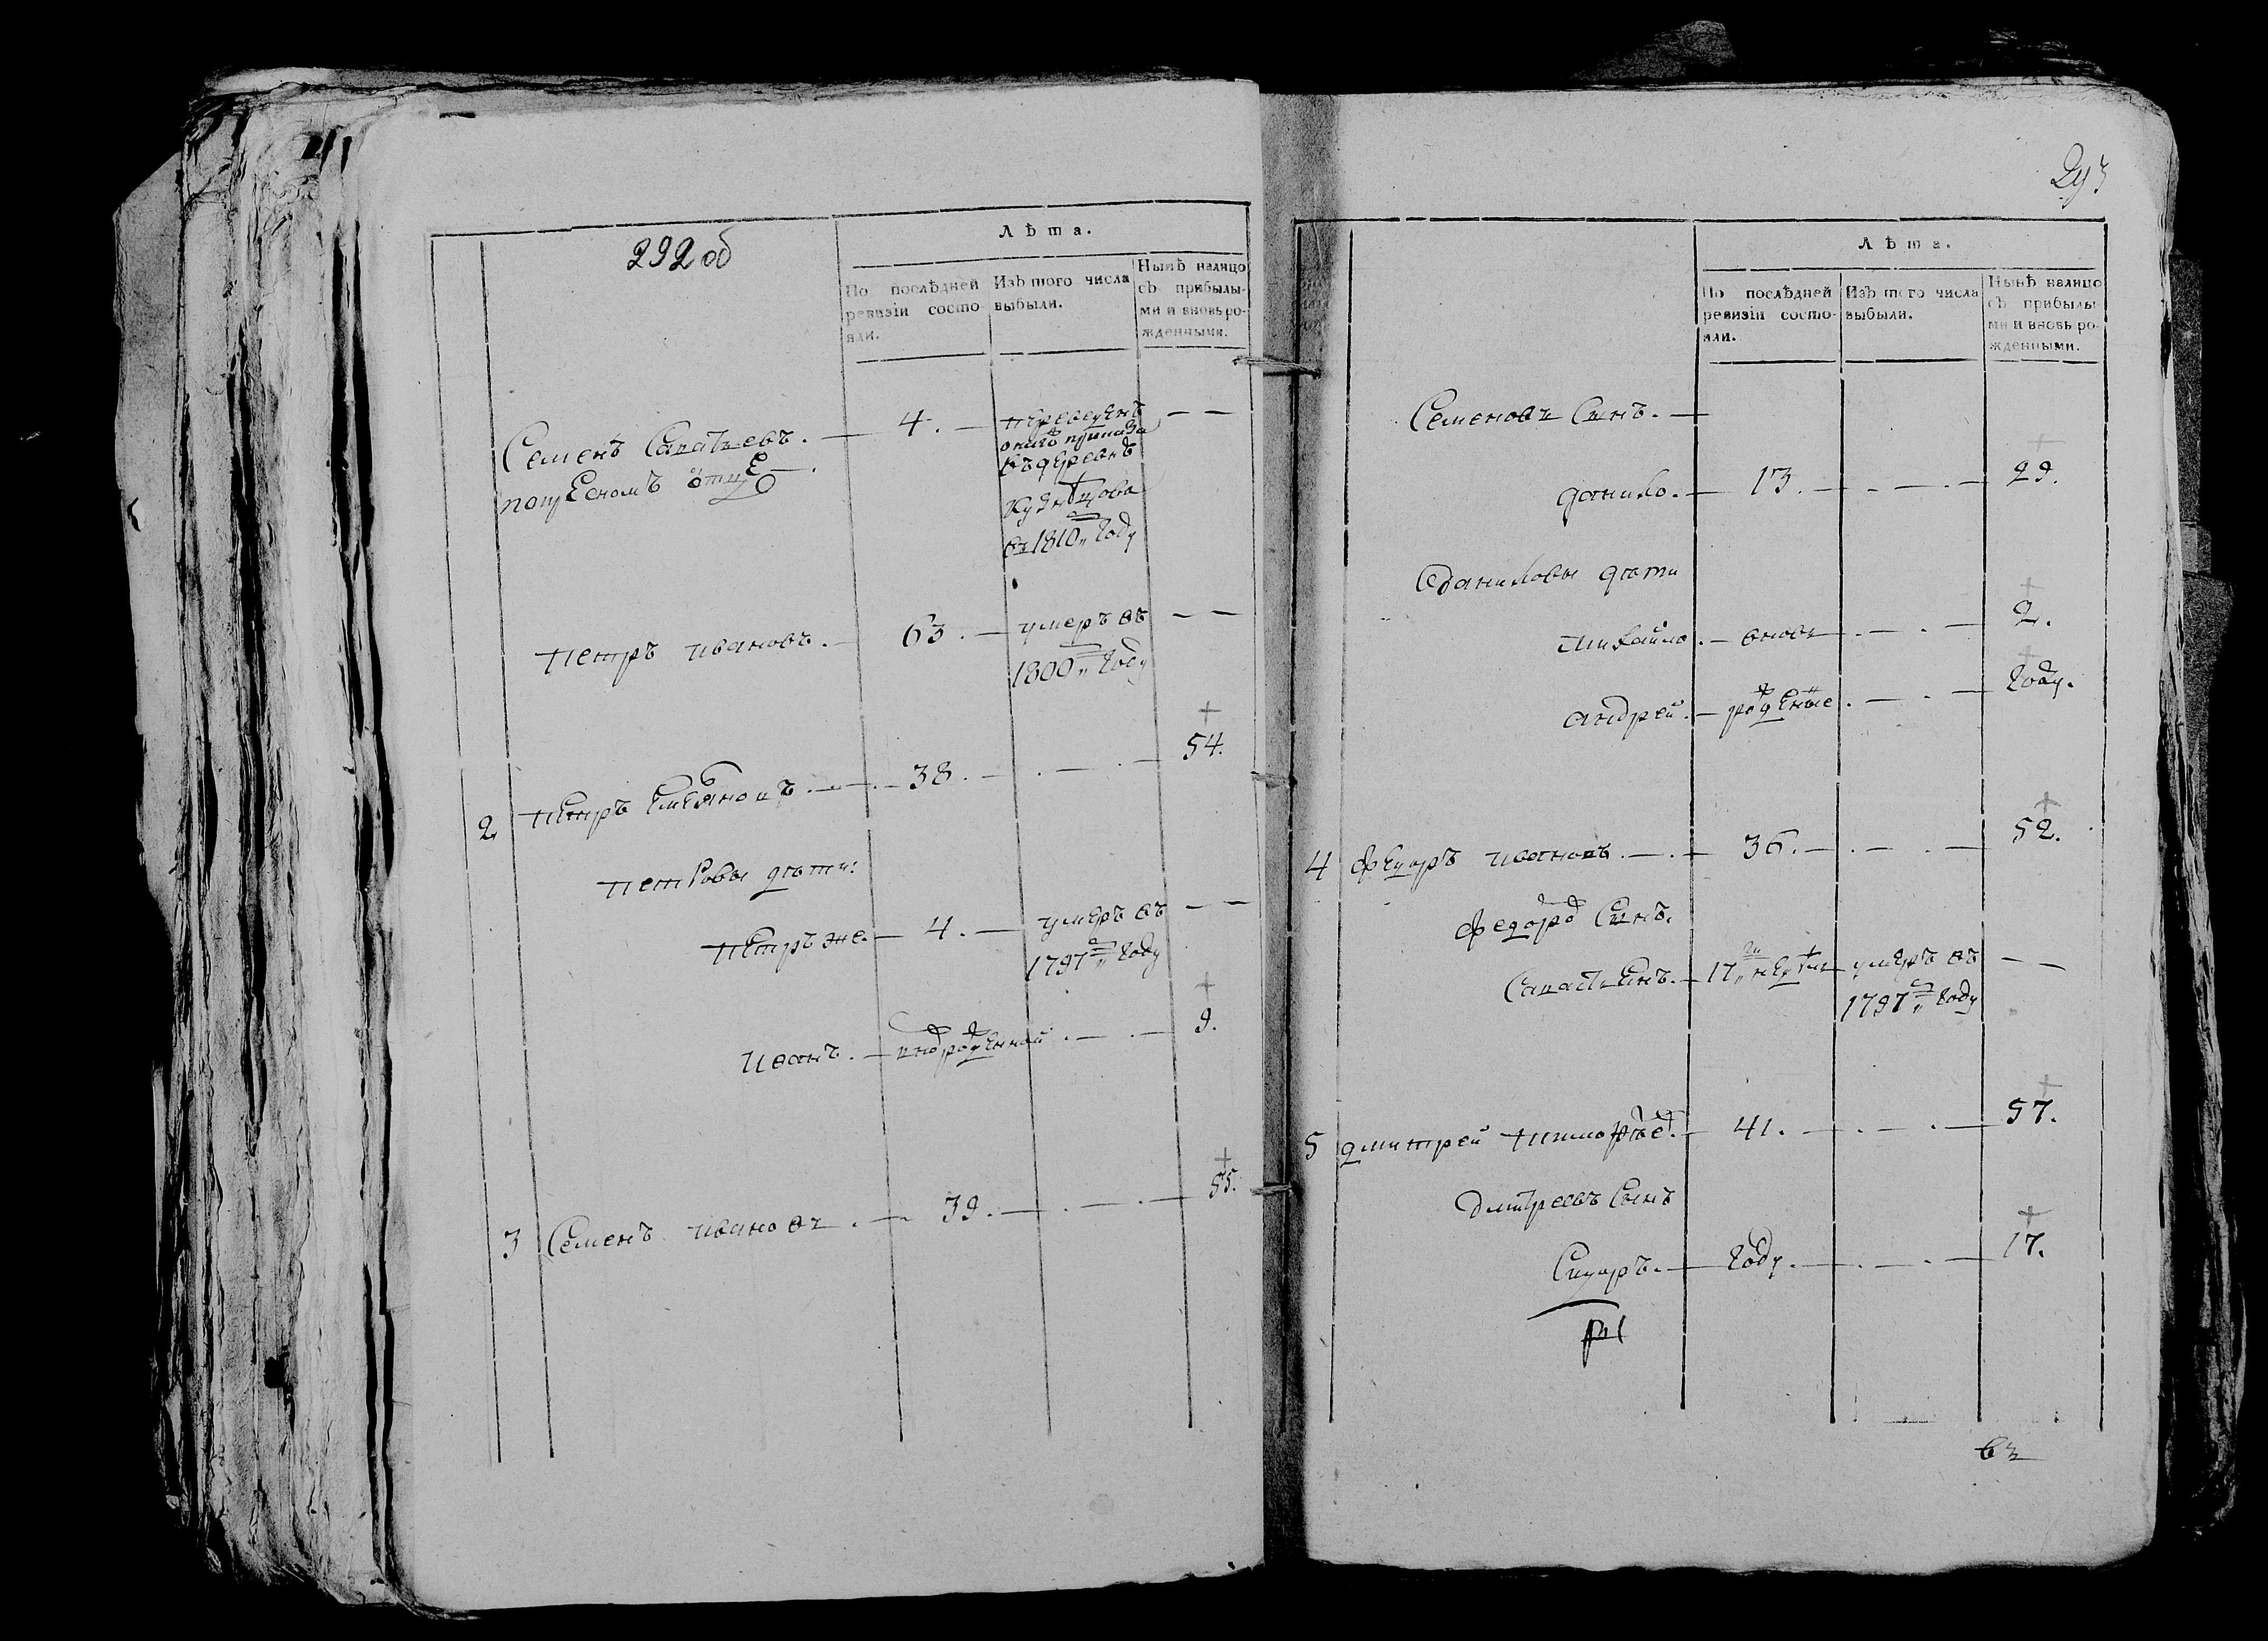 292 об
Лѣта.
По послѣдней ревизіи состояли.
Изъ того числа выбыли.
Нынѣ налицо съ прибылыми и вновь рожденными.
Семенъ Савапьевъ. — 4. — переведенъ — —
въ деревнѣ
въ 1810м году
Петръ Ивановъ. — 63. — умеръ въ — —
1800м году
+
2 Петръ Емеяновъ — 38. — . — . — 54.
Петровы дети:
Петръ же. — 4. — умеръ въ — —
1797м году
+
Иванъ. — вновъ рожденной . — . — 9.
+
3 Семенъ Ивановъ . — 39. — . — . — 55.
293
Лѣта.
По послѣдней ревизіи состояли.
Изъ того числа выбыли.
Нынѣ налицо съ прибылыми и вновь рожденными.
Семеновъ Сынъ. —
+
Данило. — 13. — . — 29.
Даниловы дети
+
Михайло. — вновъ . — . — 2.
+
Андрей. — рожденые . — . — году.
+
4 Федоръ Ивановъ. — . — 36. — . — . — 52.
Федоровъ Сынъ.
17 недель умеръ въ — —
1797м году
+
5 Дмитрей Тимофеевъ. — 41. — . — . — 57.
Дмитреевъ Сынъ
+
Сидоръ. — году. — . — . — 17.
въ